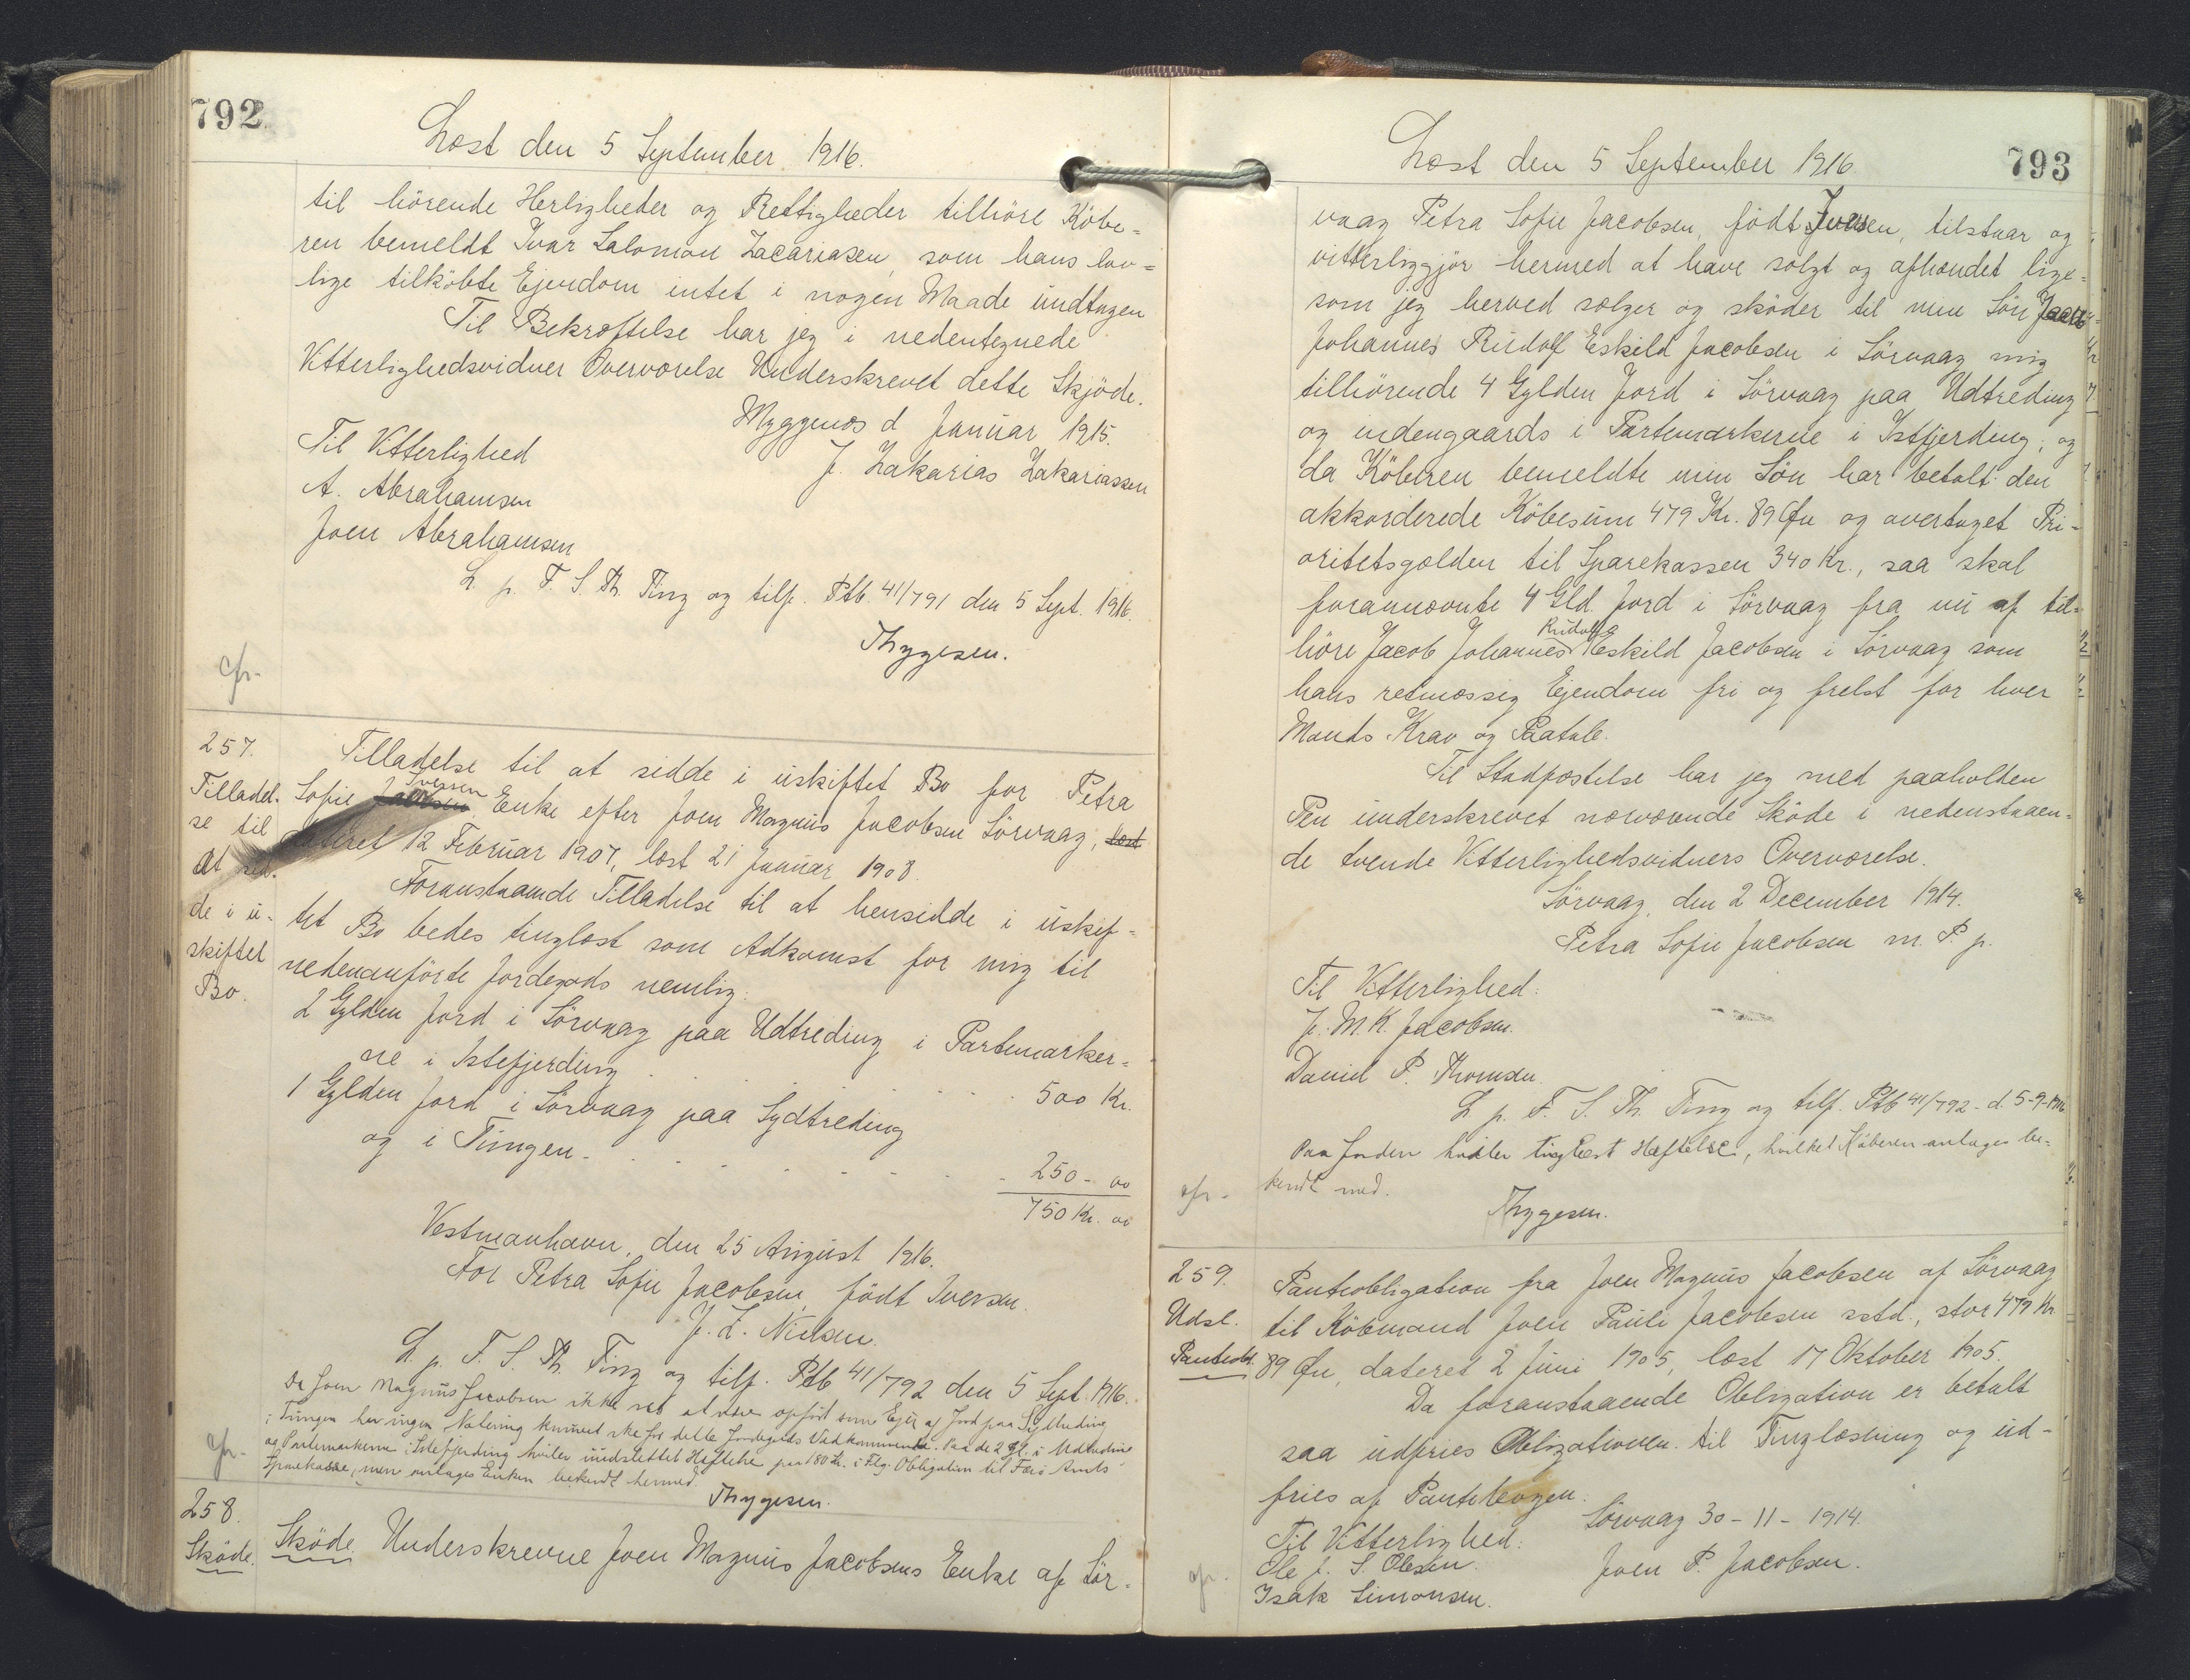 792.
Læst den 5 September 1916.
til hörende Herligheder og Rettigheder tilhöre Köbe=
ren bemeldt Ivar Salomon Zacariasen som hans lov=
lige tilköbte Ejendom intet i nogen Maade undtagen
Til Bekræftelse har jeg i nedentegnede
Vitterlighedsvidner Overværelse Underskrevet dette Skjöde.
Myggenæs d Januar 1915.
J. Zakarias Zakariassen
Til Vitterlighed
A. Abrahamsen
Joen Abrahamsen
L. p. F. S. Th. Ting og tilf. Ptb. 41/791 den 5 Sept. 1916.
Thygesen.
cfr.
257.
Tilladel-
se til
at sid-
de i u-
skiftet
Bo.
Tilladelse til at sidde i uskiftet Bo for Petra
Sofie Iversen Enke efter Joen Magnus Jacobsen Sörvaag, læst
dateret 12 Februar 1907, læst 21 Januar 1908.
Foranstaaende Tilladelse til at hensidde i uskif=
tet Bo bedes tinglæst som Adkomst for mig til
nedenanförte Jordegods nemlig:
2 Gylden Jord i Sörvaag paa Udtreding i Partemarker=
ne i Istefjerding . . . . . 500 Kr.
1 Gylden Jord i Sörvaag paa Sydtreding
og i Tungen - . . . . . 250 - 00
750 Kr. 00
Vestmanhavn, den 25 August 1916.
For Petra Sofie Jacobsen, födt Iversen.
J. Z. Nielsen.
L. p. F. S. Th. Ting og tilf. Ptb 41/792 den 5 Sept. 1916.
Da Joen Magnus Jacobsen ikke ses at være opfört som Ejer af Jord paa Sydtreding
i Tungen har ingen Notering kunnet ske for dette Jordegods Vedkommende. Paa de 2 Gl. i Udtreding
og Partemarkerne i Istefjerding hviler uudslettet Hæftelse paa 180 Kr. i Flg. Obligation til Færö Amts
Sparekasse, men antages Enken bekendt hermed.
Thygesen.
cfr.
258.
Sköde.
Sköde. Underskrevne Joen Magnus Jacobsens Enke af Sör-
Læst den 5 September 1916.
793
vaag Petra Sofie Jacobsen, födt Iversen, tilstaar og
vitterliggjör hermed at have solgt og afhændet lige=
som jeg herved sælger og sköder til min Sön Jacob
Johannes Rudolf Eskild Jacobsen i Sörvaag mig
tilhörende 4 Gylden Jord i Sörvaag paa Udtreding
og indengaards i Partemarkerne i Istfjerding, og
da Köberen bemeldte min Sön har betalt den
akkorderede Köbesum 479 Kr. 89 Öre og overtaget Pri-
oritetsgælden til Sparekassen 340 Kr., saa skal
forannævnte 4 Gld. Jord i Sörvaag fra nu af til-
höre Jacob Johannes Rudolf Eskild Jacobsen i Sörvaag som
hans retmæssig Ejendom fri og frelst for hver
Mands Krav og Paatale.
Til Stadfæstelse har jeg med paaholden
Pen underskrevet nærværende Sköde i nedenstaaen-
de tvende Vitterlighedsvidners Overværelse.
Sörvaag, den 2 December 1914.
Petra Sofie Jacobsen m. P. p.
Til Vitterlighed:
J. M. K. Jacobsen.
Daniel P. Thomsen.
L. p. F. S. Th. Ting og tilf. Ptb 41/792 - d. 5-9-1916
Paa Jorden hviler tinglæst Hæftelse, hvilket Köberen antages be-
kendt med.
Thygesen.
cfr.
259.
Udsl.
Panteobl.
Panteobligation fra Joen Magnus Jacobsen af Sörvaag
til Köbmand Joen Pauli Jacobsen sstd., stor 479 Kr
89 Öre, dateret 2 Juni 1905, læst 17 Oktober 1905.
Da foranstaaende Obligation er betalt
saa udfries Obligationen til Tinglæsning og ud-
fries af Pantebogen.
Sörvaag 30 - 11 - 1914.
Joen P. Jacobsen.
Til Vitterlighed:
Ole J. S. Olesen.
Isak Simonsen.
cfr.